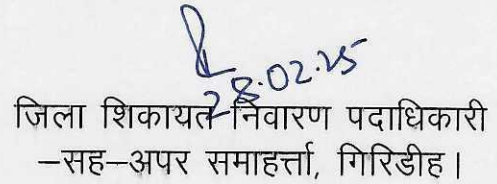 28.02.25
जिला शिकायत निवारण पदाधिकारी
–सह–अपर समाहर्त्ता, गिरिडीह।